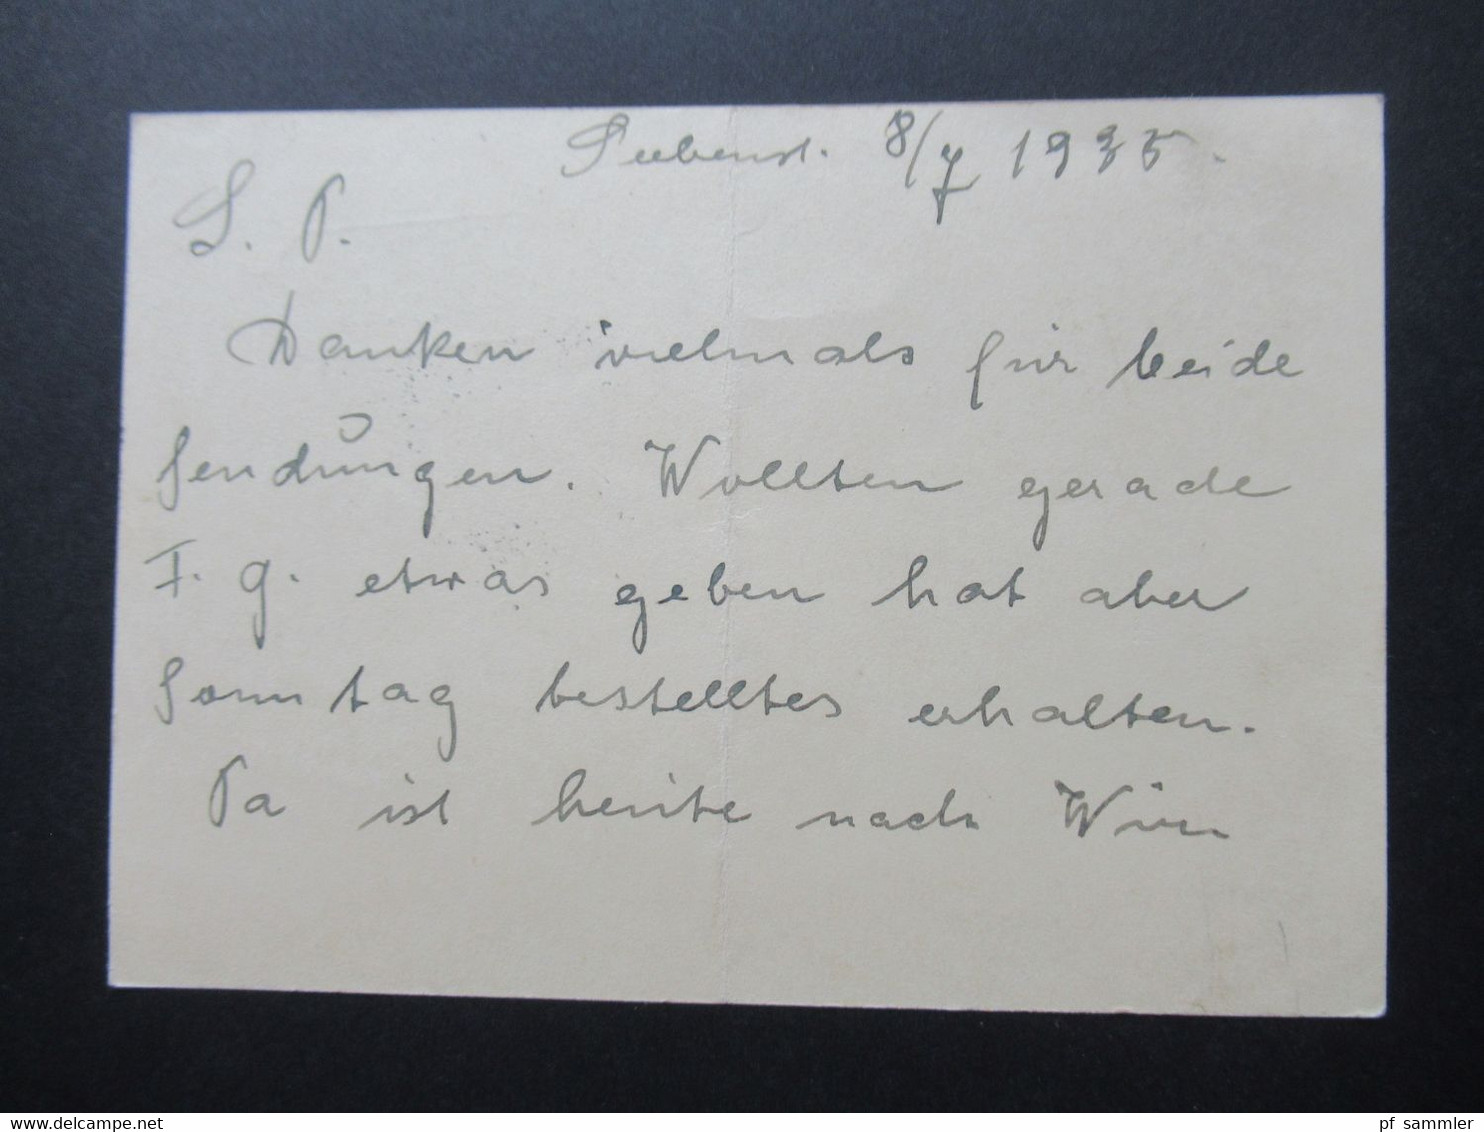 Seebenst. 8/7 1935.
S. P.
Danken vielmals für beide
Sendungen. Wollten gerade
F. G. etwas geben hat aber
Sonntag bestelltes erhalten.
Pa ist heute nach Wien
www.delcampe.net
pf_sammler